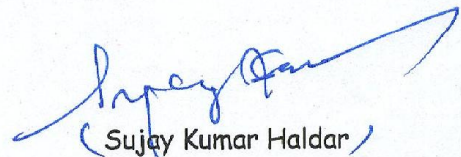 (Sujay Kumar Haldar)